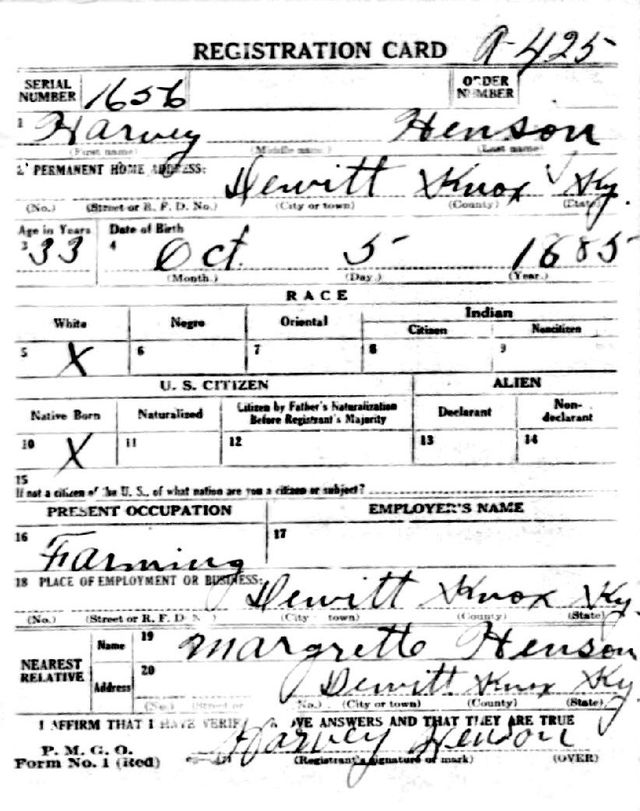 REGISTRATION CARD A-425
SERIAL NUMBER 1656 ORDER NUMBER
1 Harvey Henson
(First name) (Middle name) (Last name)
2 PERMANENT HOME ADDRESS: Dewitt Knox Ky.
(No.) (Street or R. F. D. No.) (City or town) (County) (State)
Age in Years Date of Birth
3 33 4 Oct. 5 1885
(Month.) (Day.) (Year.)
RACE
White Negro Oriental Indian
Citizen Noncitizen
5 X 6 7 8 9
U. S. CITIZEN ALIEN
Native Born Naturalized Citizen by Father's Naturalization Before Registrant's Majority Declarant Non-declarant
10 X 11 12 13 14
15
If not a citizen of the U. S., of what nation are you a citizen or subject?
PRESENT OCCUPATION EMPLOYER'S NAME
16 Farming 17
18 PLACE OF EMPLOYMENT OR BUSINESS: Dewitt Knox Ky.
(No.) (Street or R. F. D. N ) (City town) (County) (State)
NEAREST RELATIVE
Name 19 Margrette Henson
Address 20 Dewitt Knox Ky
(No.) (Street or No.) (City or town) (County) (State)
I AFFIRM THAT I HAVE VERIF OVE ANSWERS AND THAT THEY ARE TRUE
P. M. G. O. Harvey Henson
Form No. 1 (Red) (Registrant's signature or mark) (OVER)